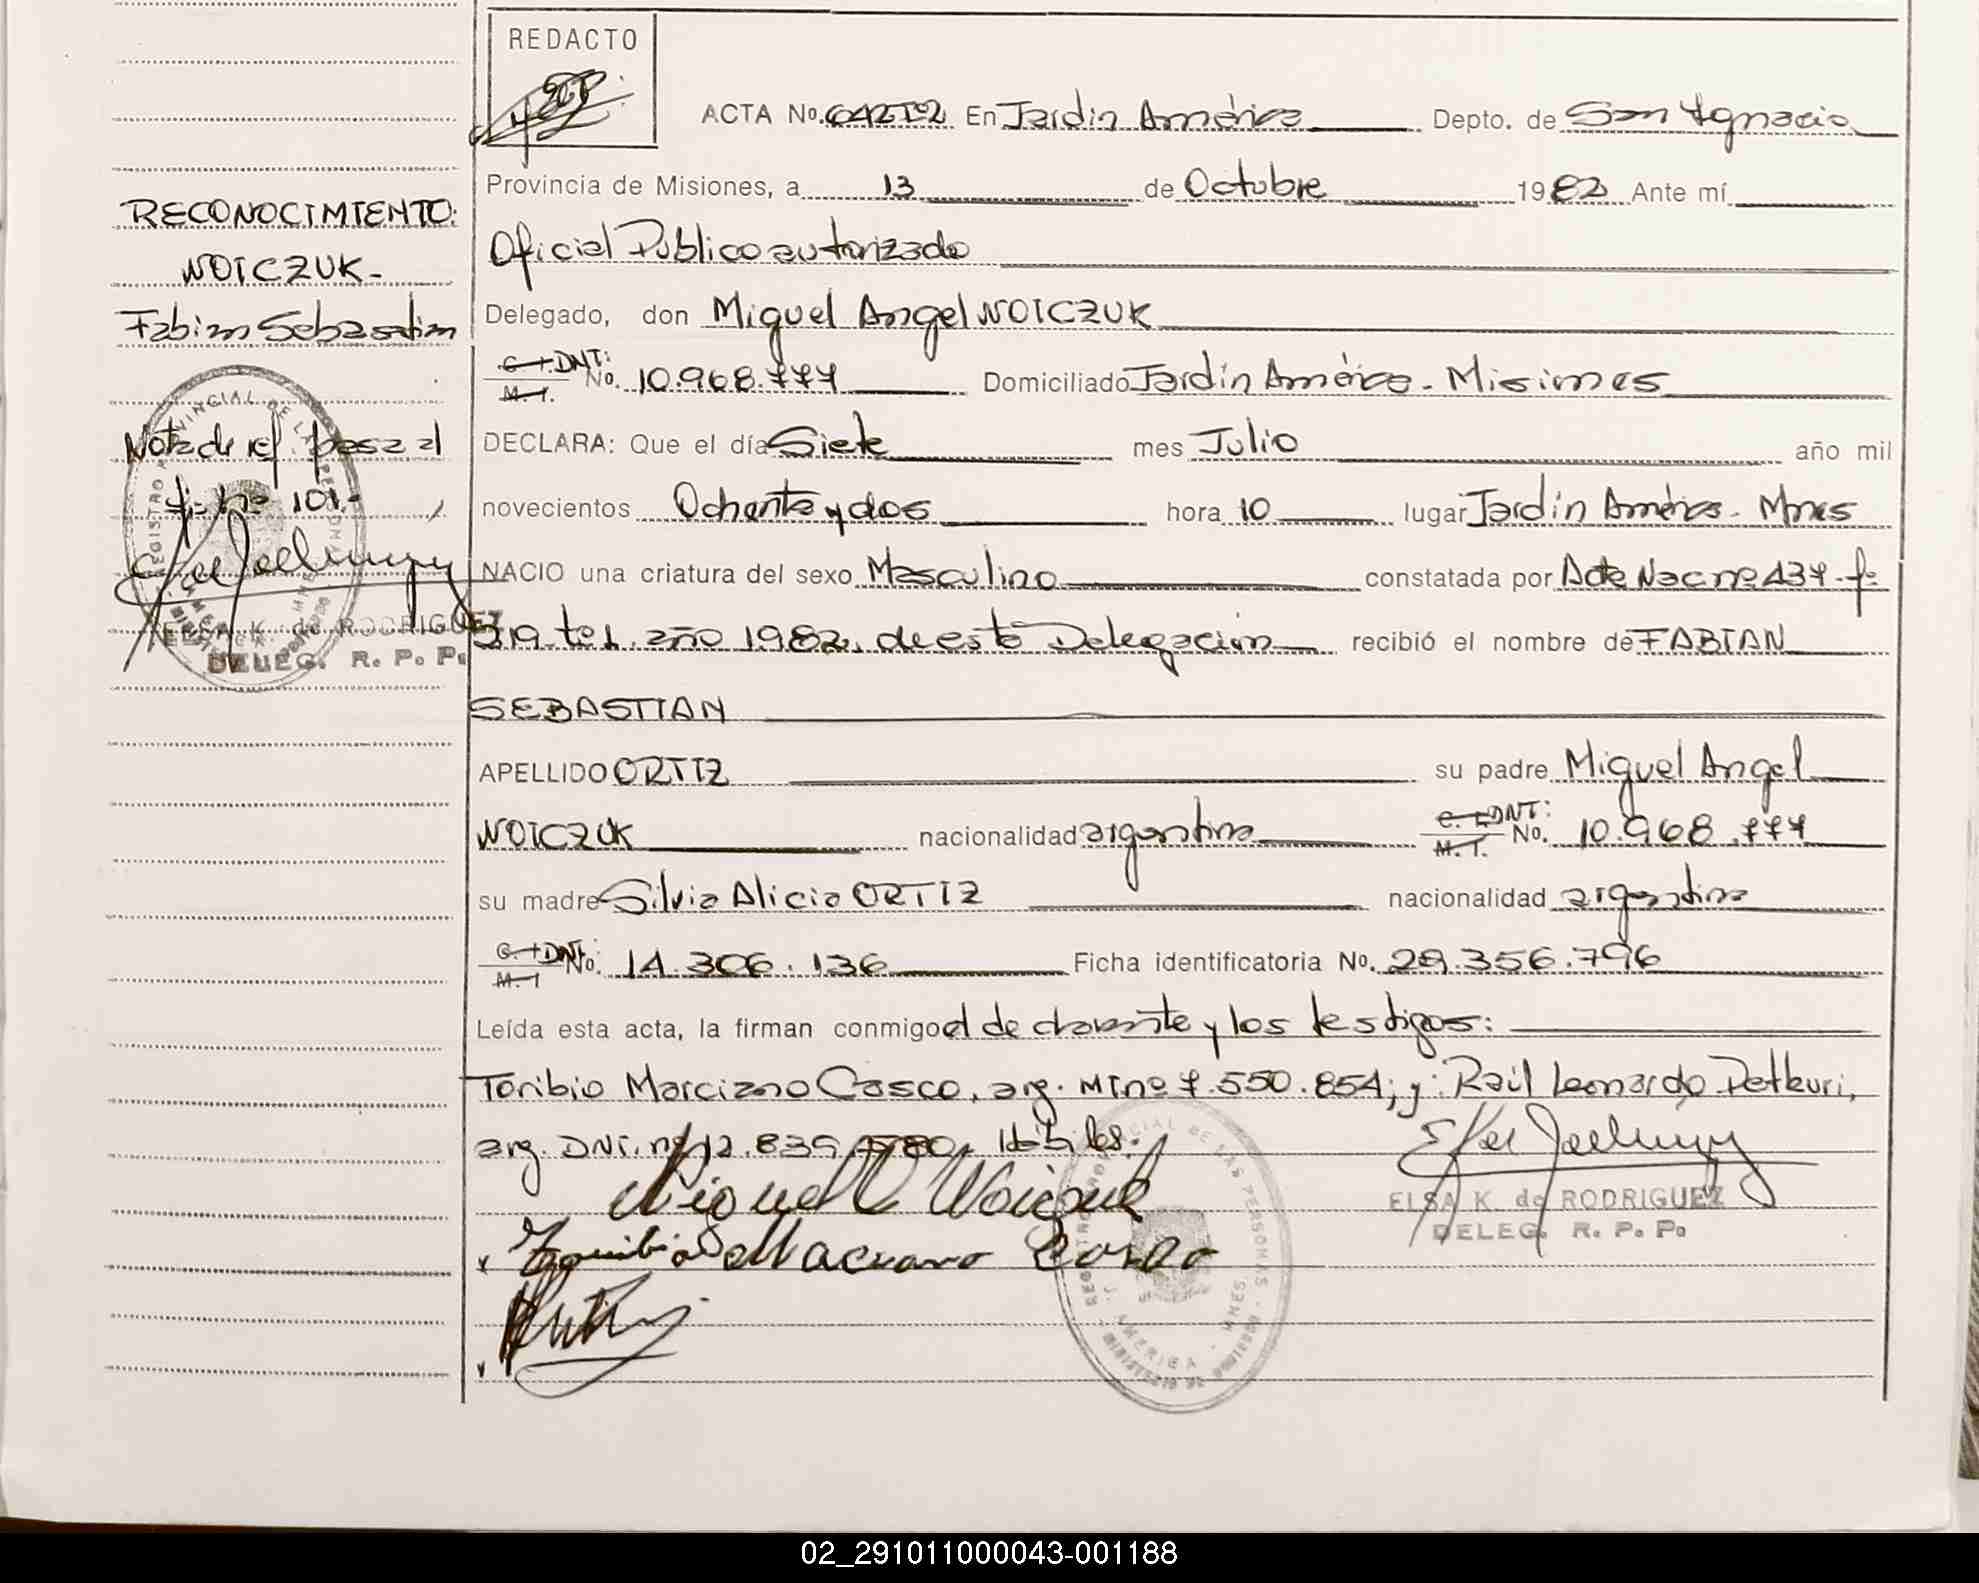 REDACTO
ACTA No. 642 Tº2 En Jardín América Depto. de San Ignacio
Provincia de Misiones, a 13 de Octubre 1982 Ante mí
Oficial Público autorizado
Delegado, don Miguel Angel WOICZUK
C. I. DNI: M. I. No. 10.968.777 Domiciliado Jardín América - Misiones
DECLARA: Que el día Siete mes Julio año mil
novecientos Ochenta y dos hora 10 lugar Jardín América - Mnes
NACIO una criatura del sexo Masculino constatada por Acta Nac nº 437 - fº
219 - tº 1. año 1982, de esta Delegación recibió el nombre de FABIAN
SEBASTIAN
APELLIDO ORTIZ su padre Miguel Angel
WOICZUK nacionalidad argentina C. I. DNI: M. I. No. 10.968.777
su madre Silvia Alicia ORTIZ nacionalidad argentina
C. I. DNI: M. I No: 14.306.136 Ficha identificatoria No. 29.356.796
Leída esta acta, la firman conmigo el declarante y los testigos:
Toribio Marciano Casco, arg. MI nº 7.550.854; y: Raúl Leonardo
arg. DNI. nº 12.839.780, Hábiles.
Miguel A Woiczuk
Toribio Marciano Casco
ELSA K. de RODRIGUEZ
DELEG. R. P. P.
RECONOCIMIENTO:
WOICZUK-
Fabian Sebastian
Nota de ref. pasa al
fº nº 101.-
ELSA K. de RODRIGUEZ
DELEG. R. P. P.
REGISTRO PROVINCIAL DE LAS PERSONAS
J. AMERICA - MNES.
02_291011000043-001188